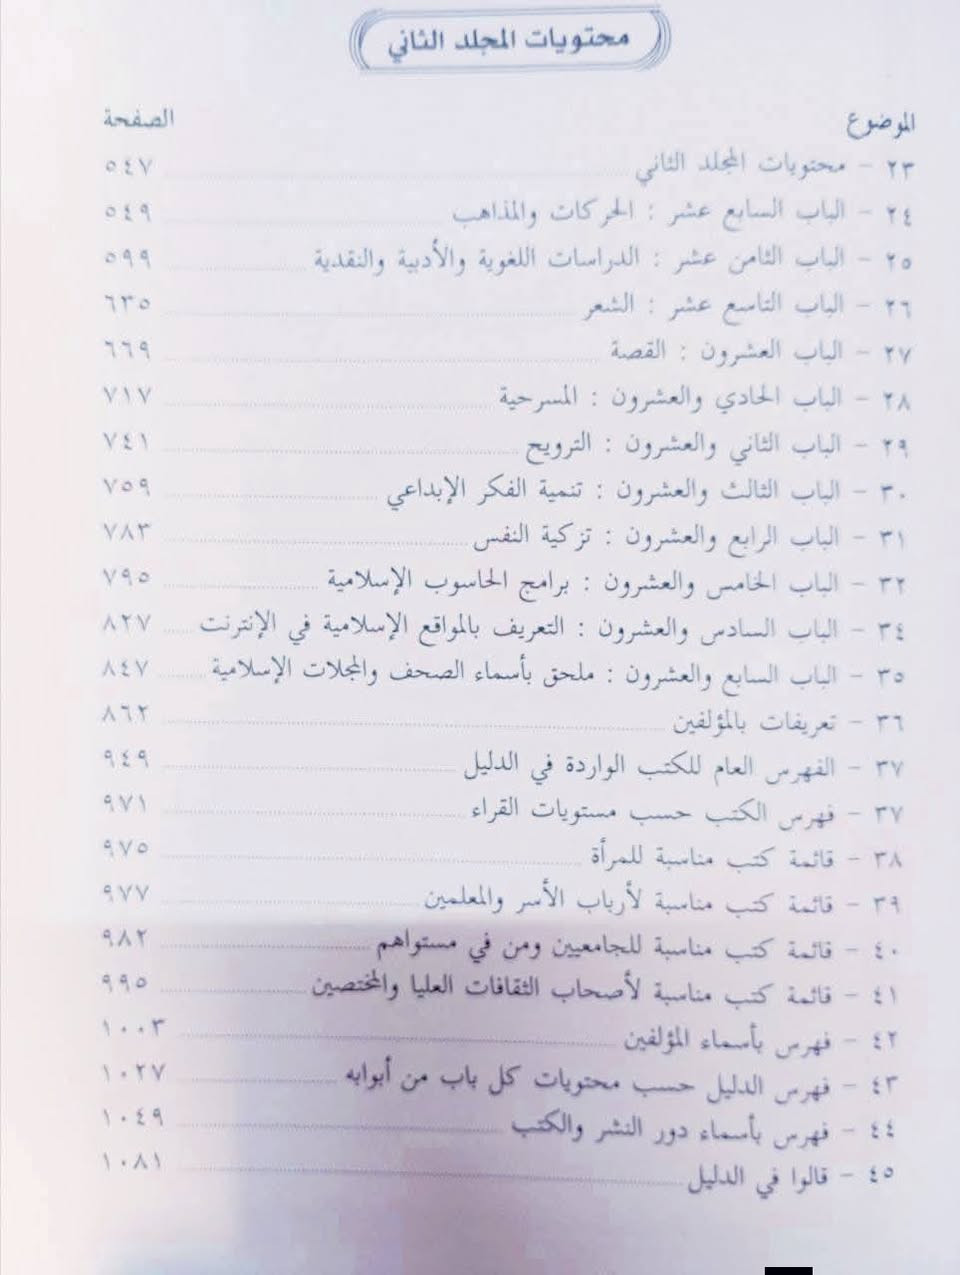 محتويات المجلد الثاني
الموضوع الصفحة
٢٣ - محتويات المجلد الثاني ٥٤٧
٢٤ - الباب السابع عشر : الحركات والمذاهب ٥٤٩
٢٥ - الباب الثامن عشر : الدراسات اللغوية والأدبية والنقدية ٥٩٩
٢٦ - الباب التاسع عشر : الشعر ٦٣٥
٢٧ - الباب العشرون : القصة ٦٦٩
٢٨ - الباب الحادي والعشرون : المسرحية ٧١٧
٢٩ - الباب الثاني والعشرون : الترويح ٧٤١
٣٠ - الباب الثالث والعشرون : تنمية الفكر الإبداعي ٧٥٩
٣١ - الباب الرابع والعشرون : تزكية النفس ٧٨٣
٣٢ - الباب الخامس والعشرون : برامج الحاسوب الإسلامية ٧٩٥
٣٤ - الباب السادس والعشرون : التعريف بالمواقع الإسلامية في الإنترنت ٨٢٧
٣٥ - الباب السابع والعشرون : ملحق بأسماء الصحف والمجلات الإسلامية ٨٤٧
٣٦ - تعريفات بالمؤلفين ٨٦٢
٣٧ - الفهرس العام للكتب الواردة في الدليل ٩٤٩
٣٧ - فهرس الكتب حسب مستويات القراء ٩٧١
٣٨ - قائمة كتب مناسبة للمرأة ٩٧٥
٣٩ - قائمة كتب مناسبة لأرباب الأسر والمعلمين ٩٧٧
٤٠ - قائمة كتب مناسبة للجامعيين ومن في مستواهم ٩٨٢
٤١ - قائمة كتب مناسبة لأصحاب الثقافات العليا والمختصين ٩٩٥
٤٢ - فهرس بأسماء المؤلفين ١٠٠٣
٤٣ - فهرس الدليل حسب محتويات كل باب من أبوابه ١٠٢٧
٤٤ - فهرس بأسماء دور النشر والكتب ١٠٤٩
٤٥ - قالوا في الدليل ١٠٨١